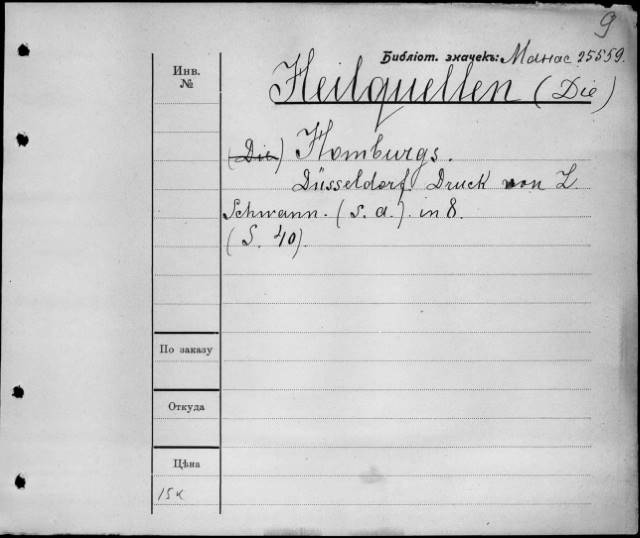 9
Библіот. значекъ: Манас 25559.
Инв.
№
Heilquellen (Die)
(Die) Homburgs.
Düsseldorf. Druck von L.
Schwann. (s. a.). in 8.
(S. 40).
По заказу
Откуда
Цѣна
15к